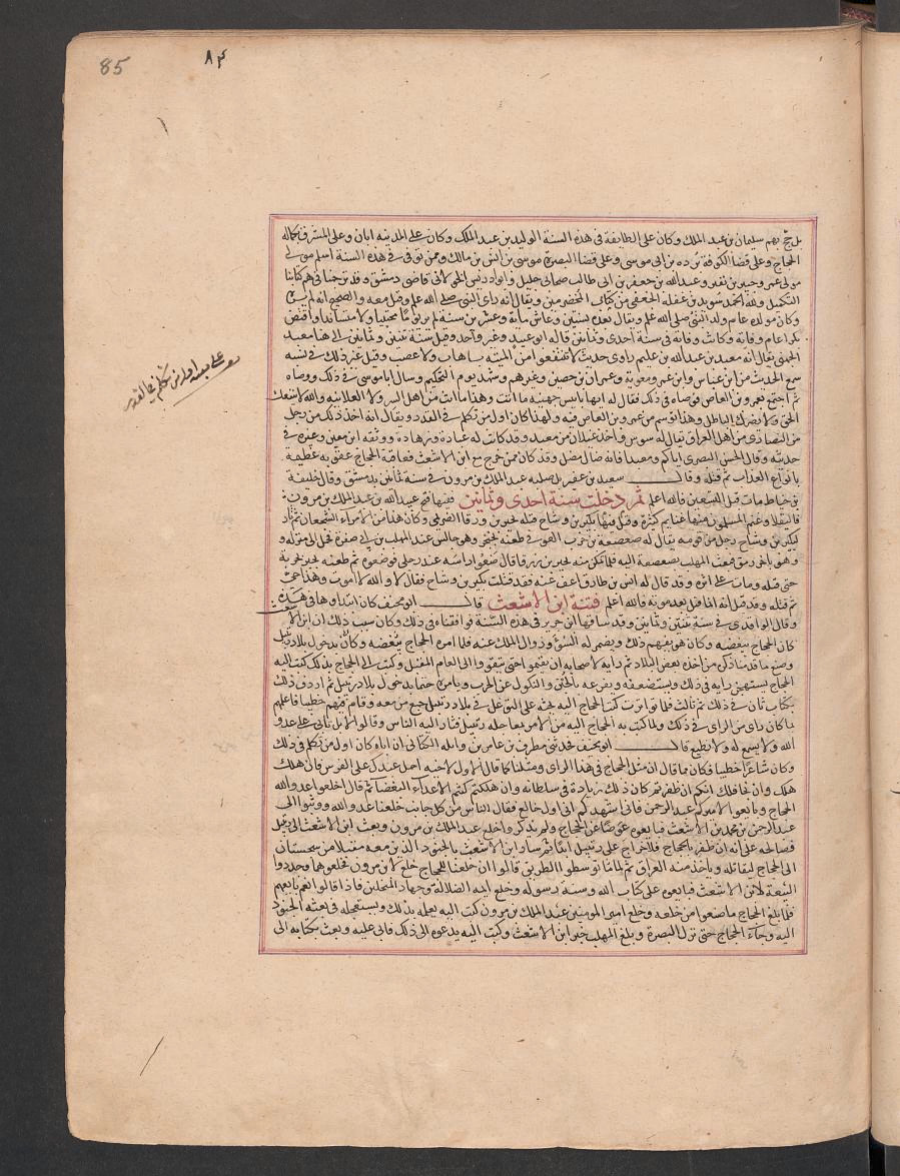 85
٨٣
على معبد اول من تكلم في القدر
بل حج بهم سليمان بن عبد الملك وكان على الطايفة في هذه السنة الوليد بن عبد الملك وكان على المدينه ابان وعلى المشرق بكماله
الحجاج وعلى قضا الكوفة بردة بن ابي موسى وعلى قضا البصرة موسى بن انس بن مالك وممن توفي في هذه السنة اسلم مولى
مولى عمر وجبير بن نفير وعبد الله بن جعفر بن ابي طالب صحابي جليل وابو ادريس الخولاني قاضي دمشق وقد ترجمناهم في كتابنا
التكميل ولله الحمد سويد بن غفلة الجعفي من كتاب المخضرمين ويقال انه راى النبي صلى الله عليه وصلى معه والصحيح انه لم يره
وكان مولده عام ولد النبي صلى الله عليه ويقال بعده بسنتين وعاش مايه وعشرين سنة لم ير يوما محتبيا ولا متساندا وافتض
بكرا عام وفاته وكانت وفاته في سنة احدى وثمانين قاله ابو عبيد وغير واحد وقيل سنة ثنتين وثمانين معبد
الجهني يقال انه معبد بن عبد الله بن عليم راوي حديث لا تنتفعوا من الميته باهاب ولا عصب وقيل غير ذلك في نسبه
سمع الحديث من ابن عباس وابن عمر ومعوية وعمران بن حصين وغيرهم وشهد يوم التحكيم وسال ابا موسى في ذلك ووصاه
ثم اجتمع بعمرو بن العاص فوصاه في ذلك فقال له ايها يا تيس جهينه ما انت وهذا ما انت من اهل السر ولا العلانيه والله لا ينفعك
الحق ولا يضرك الباطل وهذا توسم من عمرو بن العاص فيه ولهذا كان اول من تكلم في القدر ويقال انه اخذ ذلك من رجل
من النصارى من اهل العراق يقال له سوس واخذ غيلان من معبد وقد كانت له عبادة وزهادة ووثقه ابن معين وغيره في
حديثه وقال الحسن البصري اياكم ومعبدا فانه ضال مضل وقد كان ممن خرج مع ابن الاشعث فعاقبه الحجاج عقوبه عظيمة
بانواع العذاب ثم قتله وقال سعيد بن عفير بل صلبه عبد الملك بن مرون في سنة ثمانين بدمشق وقال خليفة
بن خياط مات قبل التسعين فالله اعلم ثم دخلت سنة احدى وثمانين ففيها فتح عبيد الله بن عبد الملك بن مرون
قاليقلا وغنم المسلمون منها غنايم كثيرة وقتل فيها بكير بن وشاح قتله بحير بن ورقا الصريمي وكان هذا من الامراء الشجعان ثم ثار
لبكير بن وشاح رجل من قومه يقال له صعصعة بن حرب العوفي طعنه بخنجر وهو جالس عند المهلب بن ابي صفرة فحمل الى منزله و
وهو باخر رمق فبعث المهلب بصعصعة اليه فلما تمكن منه بحير بن ورقا قال ضعوا راسه عند رجلي فوضعوه ثم طعنه بحير بحربة
حتى قتله ومات على اثره وقد قال له انس بن طارق اعف عنه فقد قتلت بكير بن وشاح فقال لا والله لا اموت وهذا حي
ثم قتله وقد قيل انه انما قتل بعد موته فالله اعلم فتنة ابن الاشعث قال ابو مخنف كان ابتداوها في هذه
وقال الواقدي في سنة ثنتين وثمانين وقد ساقها ابن جرير في هذه السنة فوافقناه في ذلك وكان سبب ذلك ان ابن الاشعث
كان الحجاج يبغضه وكان هو يفهم ذلك ويضمر له السوء وزوال الملك عنه فلما امره الحجاج وكان بدخول بلاد رتبيل
وصنع ما قدمنا ذكره من اخذه بعض البلاد ثم راى لاصحابه ان يقيموا حتى يتقووا الى العام المقبل وكتب الى الحجاج بذلك كتب اليه
الحجاج يستهجن رايه في ذلك ويستضعفه ويقرعه بالجبن والنكول عن الحرب ويامره حتما بدخول بلاد رتبيل ثم اردف ذلك
بكتاب ثان في ذلك ثم ثالث فلما تواترت كتب الحجاج اليه يحثه على التوغل في بلاد رتبيل جمع من معه وقام فيهم خطيبا فاعلمهم
بما كان راى من الراي في ذلك وبما كتب به الحجاج اليه من الامر بمعاجلة رتبيل فثار اليه الناس وقالوا لا بل نابى على عدو
الله ولا نسمع له ولا نطيع قال ابو مخنف فحدثني مطرف بن عامر بن واثلة الكناني ان اباه كان اول من تكلم في ذلك
وكان شاعرا خطيبا فكان مما قال ان مثل الحجاج في هذا الراي ومثلنا كما قال الاول لاخيه احمل عبدك على الفرس فان هلك
هلك وان نجا فلك انكم ان ظفرتم كان ذلك زيادة في سلطانه وان هلكتم كنتم الاعداء البغضا ثم قال اخلعوا عدو الله
الحجاج وبايعوا الاميركم عبد الرحمن فاني اشهدكم اني اول خالع فقال الناس من كل جانب خلعنا عدو الله ووثبوا الى
عبد الرحمن بن محمد بن الاشعث فبايعوه عوضا عن الحجاج ولم يذكروا خلع عبد الملك بن مرون وبعث ابن الاشعث الى رتبيل
فصالحه على انه ان ظفر بالحجاج فلا خراج على رتبيل ابدا ثم سار ابن الاشعث بالجنود الذين معه مقبلا من سجستان
الى الحجاج ليقاتله وياخذ منه العراق ثم لما توسطوا الطريق قالوا ان خلعنا للحجاج خلع لابن مرون فخلعوهما وجددوا
البيعة لابن الاشعث فبايعوه على كتاب الله وسنة رسوله وخلع ايمه الضلالة وجهاد المحلين فاذا قالوا نعم بايعهم
فلما بلغ الحجاج ما صنعوا من خلعه وخلع امير المومنين عبد الملك بن مرون كتب اليه يعلمه بذلك ويستعجله في بعثه الجنود
اليه وجاء الحجاج حتى نزل البصرة وبلغ المهلب خبر ابن الاشعث وكتب اليه يدعوه الى ذلك فابى عليه وبعث بكتابه الى